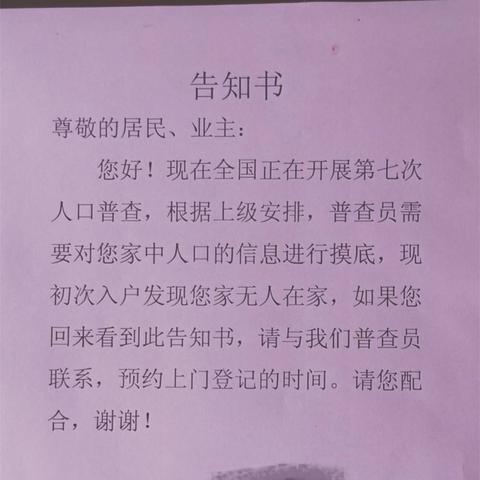 告知书
尊敬的居民、业主：
您好！现在全国正在开展第七次
人口普查，根据上级安排，普查员需
要对您家中人口的信息进行摸底，现
初次入户发现您家无人在家，如果您
回来看到此告知书，请与我们普查员
联系，预约上门登记的时间。请您配
合，谢谢！